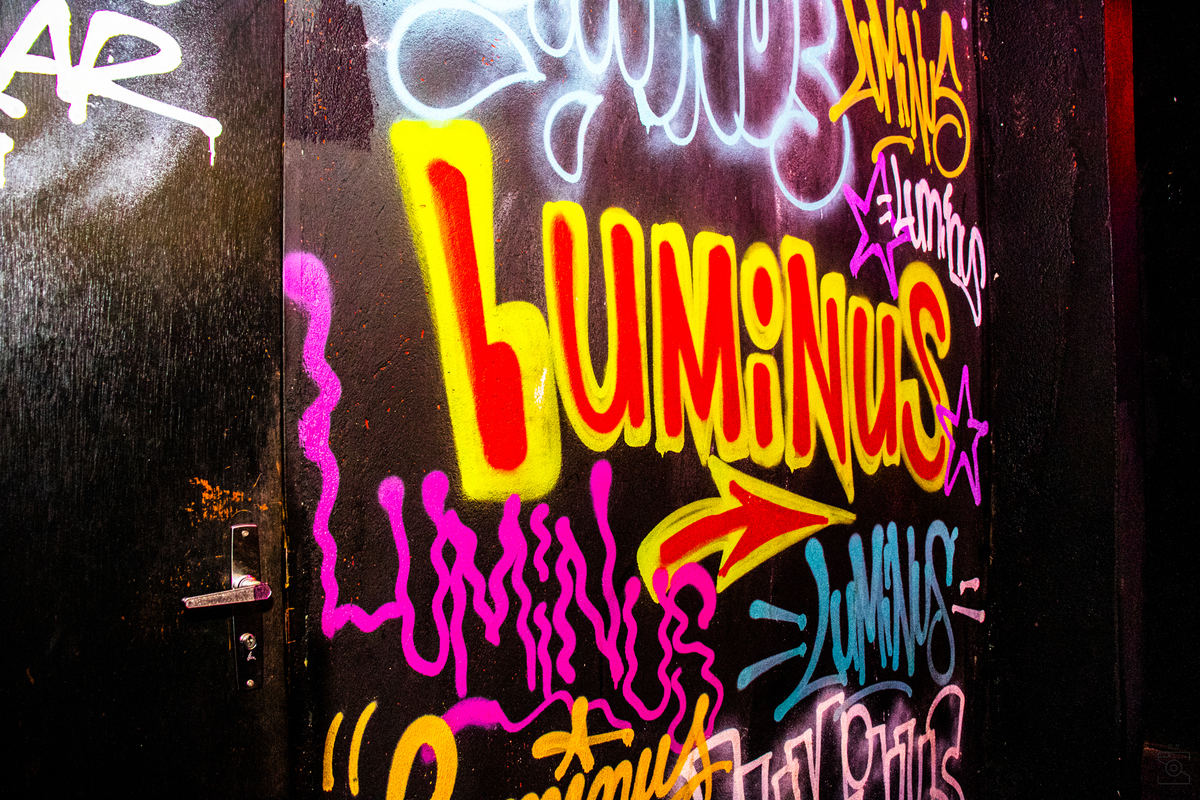 AR
LUMiNUS
Luminus
LUMiNUS
LUMiNUS
LUMiNUS
"Luminus